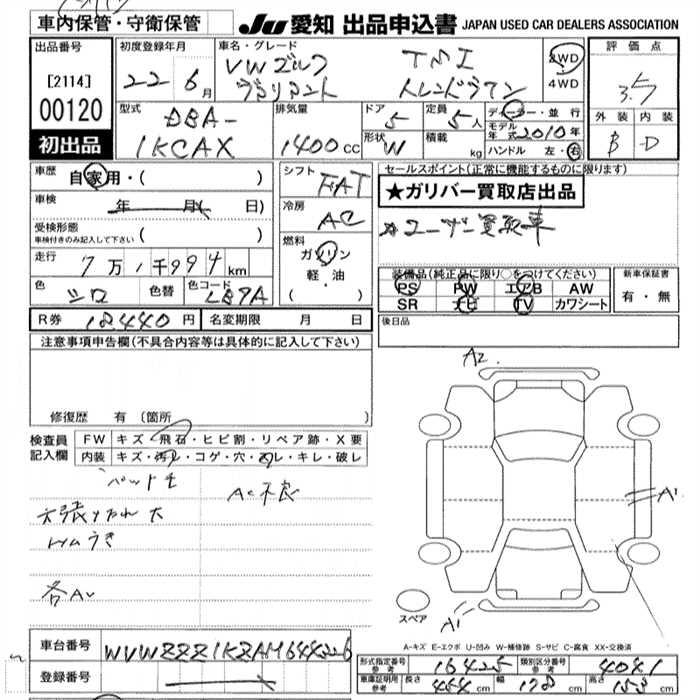 車内保管・守衛保管
JU 愛知 出品申込書 JAPAN USED CAR DEALERS ASSOCIATION
出品番号
[2114]
00120
初出品
初度登録年月
22年6月
車名・グレード
VWゴルフ TSI
ヴァリアント トレンドライン
2WD
4WD
評価点
3.5
外装 内装
B D
型式
DBA-
1KCAX
排気量
1400cc
ドア
5
形状
W
定員
5人
積載
kg
ディーラー・並行
モデル年式 2010年
ハンドル 左・右
車歴
自家用・( )
車検
年 月( 日)
受検形態
車検付きのみ記入して下さい ( )
走行
7万1千994km
色
シロ
色替
色コード
LB9A
R券 18440円
名変期限 月 日
シフト
FAT
冷房
AC
燃料
ガソリン
軽・油
( ・ )
セールスポイント(正常に機能するものに限ります)
★ガリバー買取店出品
☆ユーザー買取車
装備品(純正品に限り○をつけてください)
PS PW エアB AW
SR ナビ TV カワシート
新車保証書
有・無
後日品
注意事項申告欄(不具合内容等は具体的に記入して下さい)
修復歴 有 〔箇所
検査員記入欄
FW キズ・飛石・ヒビ割・リペア跡・X要
内装 キズ・汚レ・コゲ・穴・スレ・キレ・破レ
AC不良
天張りたれ 大
トリムうき
各AU
A2
A1
A1
スペア
A-キズ E-エクボ U-凹み W-補修跡 S-サビ C-腐食 XX-交換済
車台番号
WVWZZZ1KZAM644226
登録番号
形式指定番号
参考
16425
類別区分番号
参考
4041
車庫証明用
参考
長さ 454cm 幅 178cm 高さ 153cm